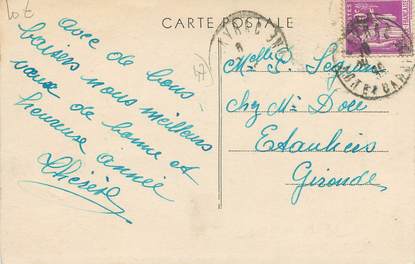 Lot
CARTE POSTALE
Avec de bons
baisers nous meilleurs
vœux de bonne et
heureuse année
Thérèse
Melle P. Seguin
Chez Mr Doce
Etauliers
Gironde